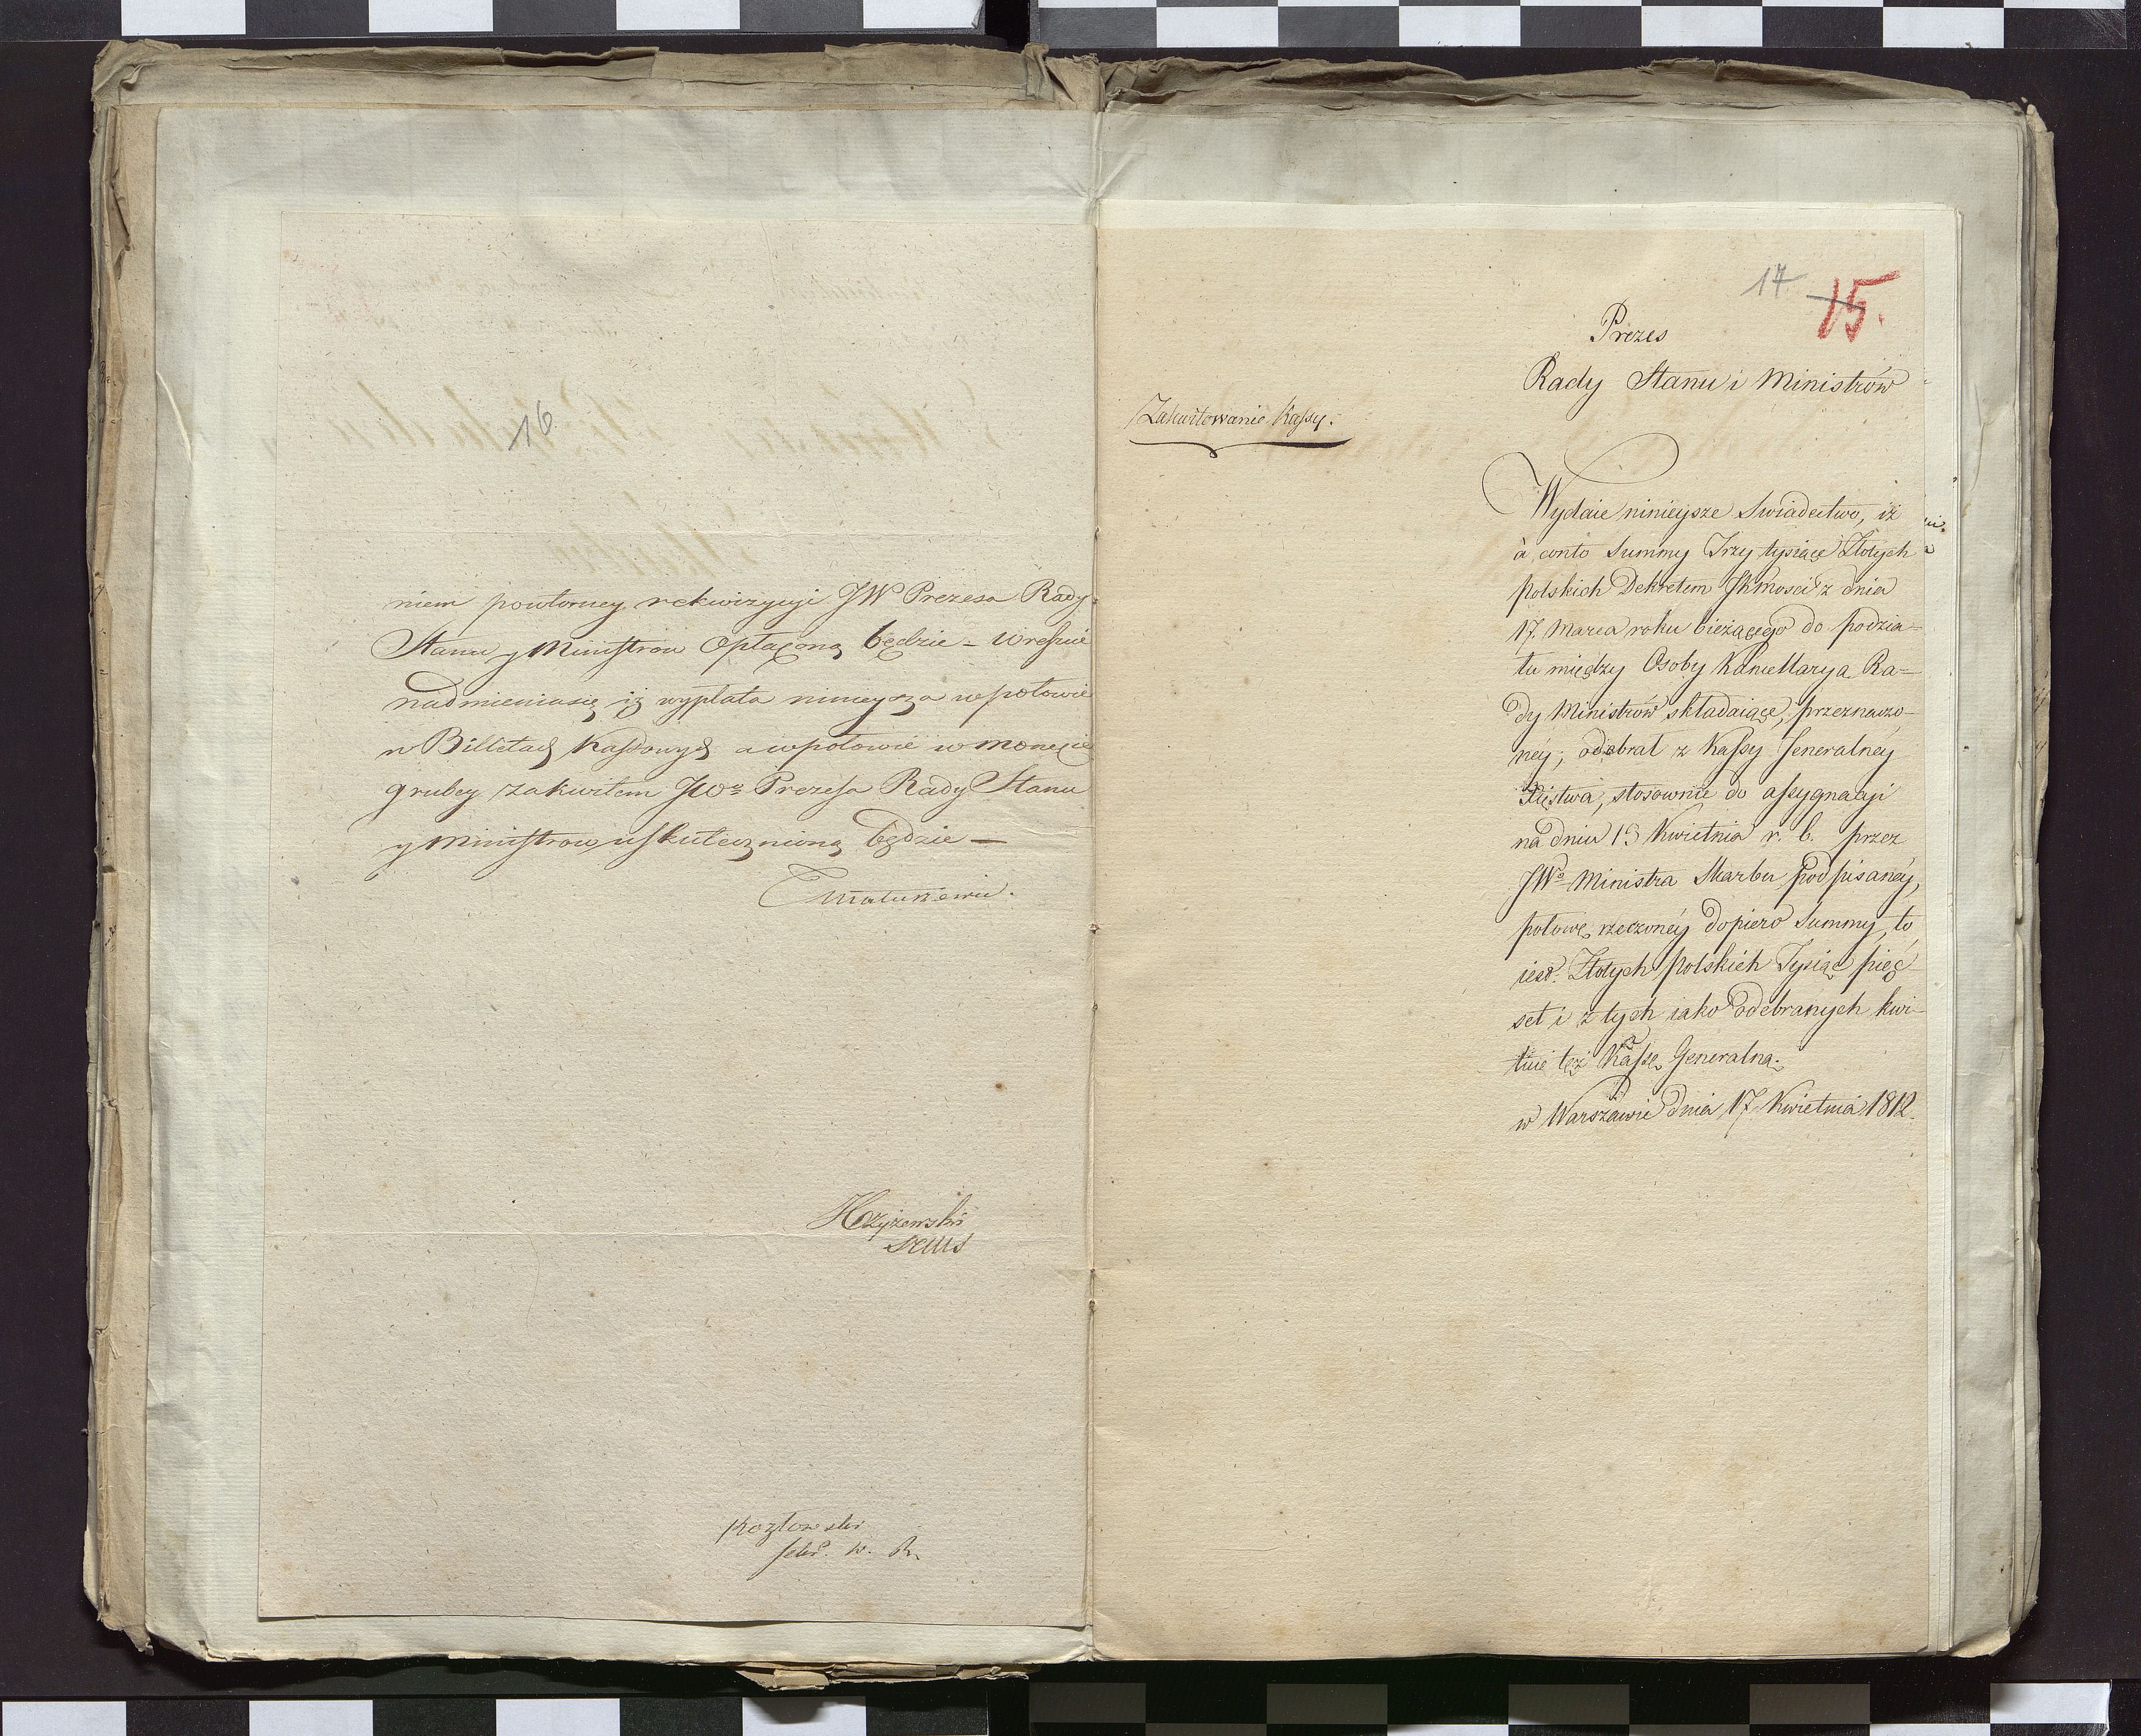 16
niem powtorney rekwizycyi JW Prezesa Rady
Stanu y Ministrow opłaconą będzie – wreszcie
nadmieniasię iż wypłata nineysza wpołowie
w Billetach Kassowych a wpołowie w monecie
grubey zakwitem JWo Prezesa Rady Stanu
y Ministrow uskutecznioną będzie —
Matuszewic.
Kozłowski
17 15.
Prezes
Rady Stanu i Ministrów
Zakwitowanie Kassy.
Wydaie ninieysze Swiadectwo, iż
à conto Summy Trzy tysiące Złotych
polskich Dekretem JKmosci z dnia
17. Marca roku bieżącego do podzia=
łu między Osoby Kancellarya Ra=
dy Ministrów składaiące, przeznaczo=
néy; odebrał z Kassy Generalnéy
Xięstwa, stosownie do assygnacyi
na dniu 13 Kwietnia r. b. przez
JWo Ministra Skarbu podpisanéy,
połowę rzeczonéy dopiero Summy, to
iest: Złotych polskich Tysiąc pięć
set i z tych iako odebranych kwi=
tuie też Kassę Generalną.
w Warszawie dnia 17 Kwietnia 1812.